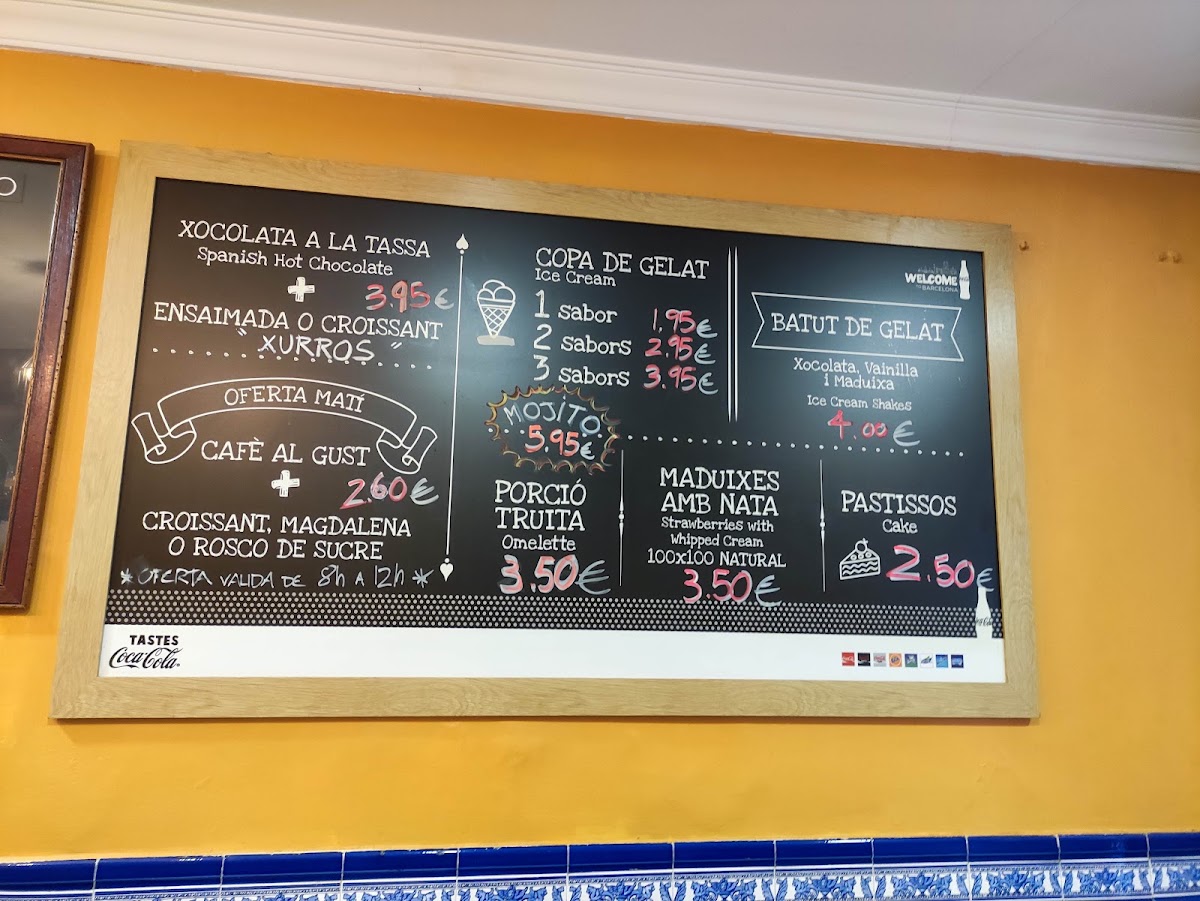 XOCOLATA A LA TASSA
Spanish Hot Chocolate
+
3.95€
ENSAIMADA O CROISSANT
"XURROS"
OFERTA MATÍ
CAFÈ AL GUST
+
2.60€
CROISSANT, MAGDALENA
O ROSCO DE SUCRE
*OFERTA VALIDA DE 8h A 12h*
COPA DE GELAT
Ice Cream
1 sabor 1.95€
2 sabors 2.95€
3 sabors 3.95€
MOJITO
5.95€
WELCOME
TO BARCELONA
BATUT DE GELAT
Xocolata, Vainilla
i Maduixa
Ice Cream Shakes
4.00€
PORCIÓ
TRUITA
Omelette
3.50€
MADUIXES
AMB NATA
Strawberries with
Whipped Cream
100x100 NATURAL
3.50€
PASTISSOS
Cake
2.50€
TASTES
Coca-Cola